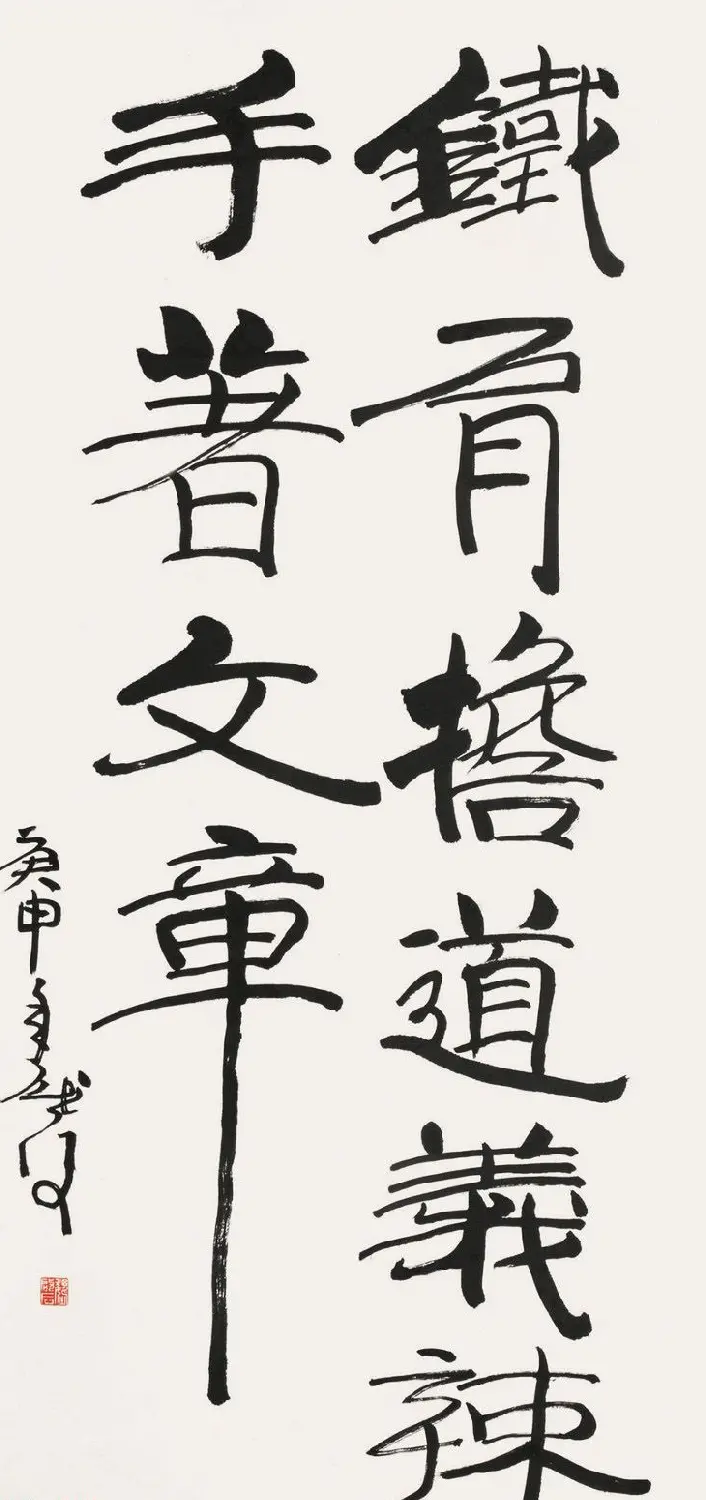 鐵肩擔道義辣
手著文章
庚申年越